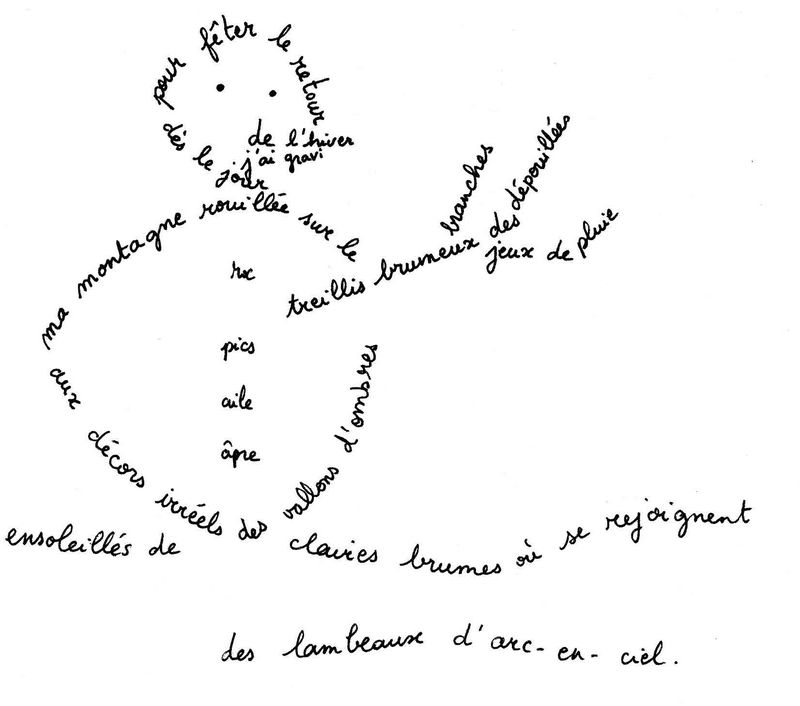 pour fêter le retour
de l'hiver
dès le jour
j'ai gravi
ma montagne rouillée sur le
treillis brumeux des
branches
dépouillées
jeux de pluie
pics
aile
âpre
aux décors irréels des
vallons d'ombres
ensoleillés de
claires brumes où se rejoignent
des lambeaux d'arc-en-ciel.